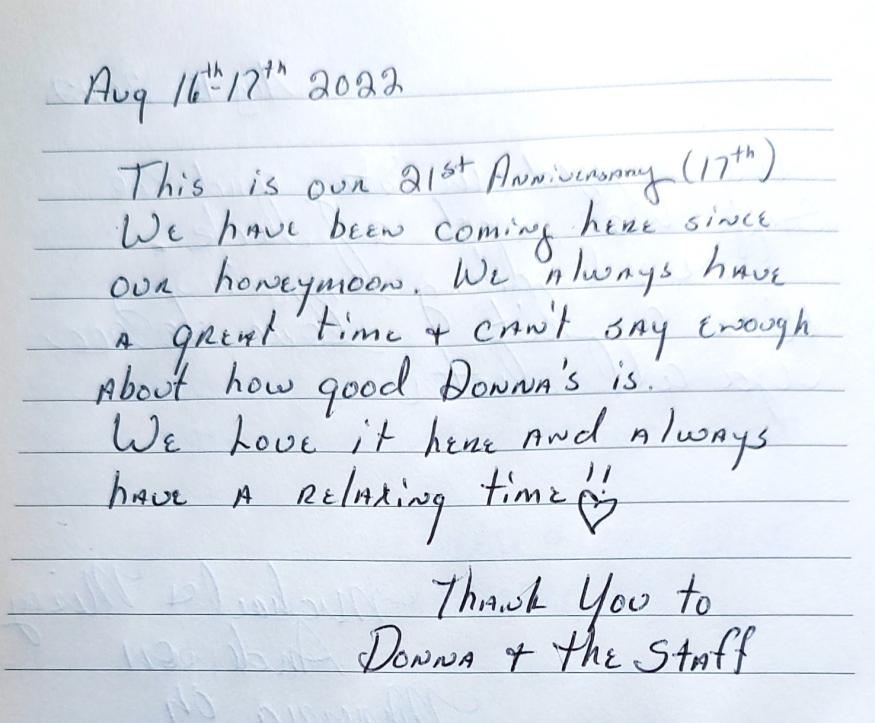 Aug 16th-17th 2022
This is our 21st Anniversary (17th)
We have been coming here since
our honeymoon. We always have
A great time + can't say enough
About how good Donna's is.
We Love it here and always
have A Relaxing time!!
Thank You to
Donna + the Staff